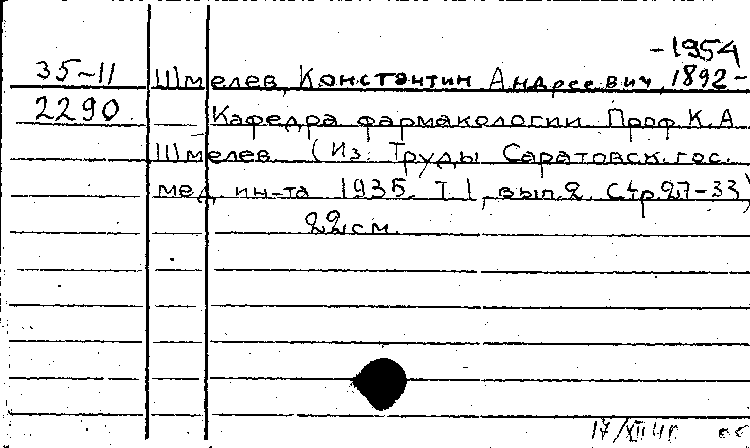 -1954
35-11 Шмелев, Константин Андреевич, 1892-
2290 Кафедра фармакологии Проф. К.А.
Шмелев. (Из: Труды Саратовск. гос.
мед. ин-та 1935. Т 1, вып. 2. Стр. 27-33)
22 см.
17/XII 41г.